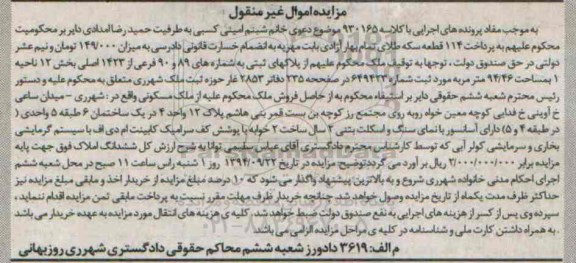 مزایده اموال غیر منقول
به موجب مفاد پرونده های اجرایی با کلاسه ۹۳۰۱۶۵ موضوع دعوی خانم شبنم امینی کسبی به طرفیت حمید رضا امدادی دایر بر محکومیت
محکوم علیهم به پرداخت ۱۱۴ قطعه سکه طلای تمام بهار آزادی بابت مهریه به انضمام خسارت قانونی دادرسی به میزان ۱۴۹/۰۰۰ تومان و نیم عشر
دولتی در حق صندوق دولت ، توجها به توقیف ملک محکوم علیهم از پلاکهای ثبتی به شماره های ۸۹ و ۹۰ فرعی از ۱۴۲۳ اصلی بخش ۱۲ ناحیه
۱ بمساحت ۹۴/۴۶ متر مربع مورد ثبت شماره ۶۴۹۴۲۳ در صفحه ۲۳۵ دفاتر ۲۸۵۳ غار حوزه ثبت ملک شهرری متعلق به محکوم علیه و دستور
رئیس محترم شعبه ششم حقوقی دایر بر استیفاء محکوم به از حاصل فروش ملک محکوم علیه از ملک مسکونی واقع در : شهرری - میدان ساعی
خ آوینی خ فدایی کوچه معین خواه روبه روی مجتمع رز کوچه بن بست قمر بنی هاشم پلاک ۱۲ واحد ۴ در یک ساختمان ۶ طبقه ۵ واحدی (
در طبقه ۴ و ۵) دارای آسانسور با نمای سنگ و اسکلت بتنی ۲ سال ساخت ۲ خوابه با پوشش کف سرامیک کابینت ام دی اف با سیستم گرمایشی
بخاری و سرمایشی کولر آبی که توسط کارشناس محترم دادگستری آقای عباس سقیمی توانا به شرح ارزش کل ششدانگ املاک فوق جهت پایه
مزایده برابر ۲/۰۰۰/۰۰۰/۰۰۰ ریال برآورد می گردد توضیح: مزایده در تاریخ ۱۳۹۴/۰۹/۲۲ روز ۱ شنبه راس ساعت ۱۱ صبح در محل شعبه ششم
اجرای احکام مدنی خانواده شهرری شروع و به بالاترین پیشنهاد واگذار می شود که ۱۰ درصد مبلغ مزایده از خریدار اخذ و مابقی مبلغ مزایده نیز
حداکثر ظرف مدت یکماه از تاریخ مزایده وصول خواهد شد. چنانچه خریدار ظرف مهلت مقرر نسبت به پرداخت مابقی ثمن مزایده اقدام ننماید ،
سپرده وی پس از کسر از هزینه های اجرایی به نفع صندوق دولت ضبط خواهد شد. کلیه ی هزینه های انتقال مورد مزایده به عهده خریدار می باشد
. به همراه داشتن کارت ملی و شناسنامه در کلیه ی مراحل مزایده الزامی می باشد
م الف: ۳۶۱۹ دادورز شعبه ششم محاکم حقوقی دادگستری شهرری روزبهانی